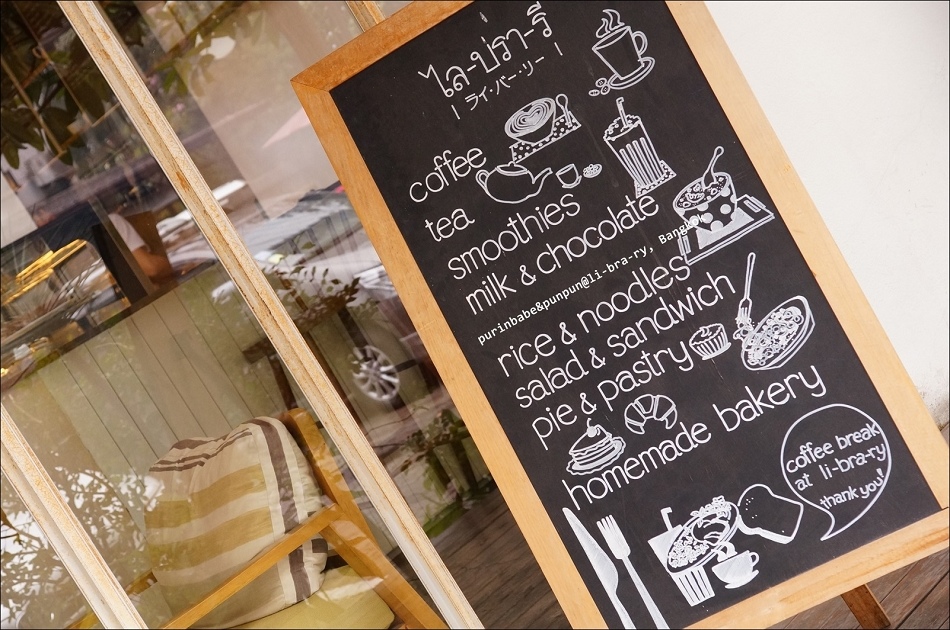 ไล-บรา-รี
| ライ・バー・リー |
coffee
tea
smoothies
milk & chocolate
purinbabe&punpun@li-bra-ry,
rice & noodles
salad & sandwich
pie & pastry
homemade bakery
coffee break
at li-bra-ry
thank you!